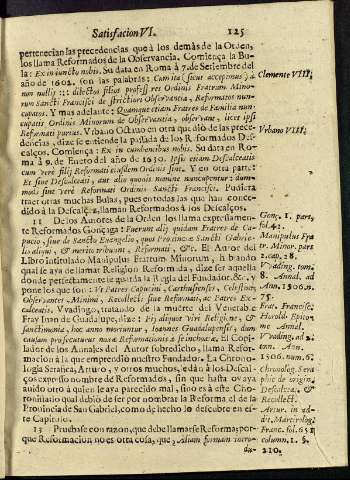 Satisfacion VI. 125
pertenecian las precedencias que à los demàs de la Orden,
los llama Reformados de la Observancia. Comiença la Bu-
la: Ex iniuncto nobis. Su data en Roma à 7. de Setiembre del
año de 1602. son las palabras: Cum ita (sicut accepimus) à
non nullis dilectos filios professores Ordinis Fratrum Mino-
rum Sancti Francisci de strictiori Observantia, Reformatos nun-
cupatos. Y mas adelante: Quamque Fratres de Familia nun-
cupatis Ordinis Minorum de Observantia, observant, licet ipsi
Reformati Vrbano Octavo en otra que diò de las prece-
dencias, dize se estiende la passada de los Reformados Des-
calços. Comiença: Ex in cumbentibus nobis. Su data en Ro-
ma à 9. de Enero del año de 1630. Ipsi etiam Descalceati
cum verè sint Reformati eiusdem Ordinis sint. Y en otra parte:
Et sive Descalceati, aut alio quovis nomine nuncupentur: dum-
modo sint verè Reformati Ordinis Sancti Francisci. Pudiera
traer otras muchas Bulas, pues en todas las que han conce-
dido à la Descalcez, llaman Reformados à los Descalços.
12 De los Autores de la Orden los llama expressamen-
te Reformados Gonçaga: Fuerunt alij quidam Fratres de Ca-
pucio, sive de Sancto Evangelio, quos Provinciae Sancti Gabrie-
lis aliqui, & meritò tribuunt, Reformati, &c. El Autor del
Libro intitulado Manipulus Fratrum Minorum, hablando
qual se aya de llamar Religion Reformada, dize ser aquella
donde perfectamente se guarda la Regla del Fundador, &c. y
pone los que son: Vt Fratres Capucini, Carthusienses, Celestini,
Observantes, Minimi, Recollecti sive Reformati, ac Patres Ex-
calceati. Vvadingo, tratando de la muerte del Venerable
Fray Iuan de Guadalupe, dize: Pij aliquot viri Religione, &
sanctimonia, hoc anno moriuntur, Ioannes Guadalupensis, dum
causam prosecuturus novae Reformationis à se inchoatae. El Copi-
lador de los Annales del Autor sobredicho, llama Refor-
macion à la que emprendiò nuestro Fundador. La Chrono-
logia Serafica, Arturo, y otros muchos, edàn à los Descal-
ços expresso nombre de Reformados, sin que hasta oy aya
auido otro à quien le aya parecido mal, sino es à este Chro-
tonitiario qual debiò de ser por nombrar la Reforma el de la
Provincia de San Gabriel, como de hecho lo descubre en es-
te Capitulo.
13 Pruebase con razon, que debe llamarse Reforma; por-
que Reformacion no es otra cosa, que, Aliam formam intro-
du-
Clemente VIII.
Vrbano VIII.
Gonç. 1. part.
fol. 42.
Manipulus Fra
tr. Minor. part
2. cap. 28.
Vvading. tom.
8. Annal. ad
Ann. 1506. n.
75.
Frat. Francisc.
Harold. Epitom
me Annal.
Vvading. ad
ann. Ann.
1506. num. 6.
Chronolog. Sera
phic de origin.
Descalceat.
& Recollect.
Artur. in ad-
dit. Martirolog.
Franc. fol. 651
column. 1. §.
210.